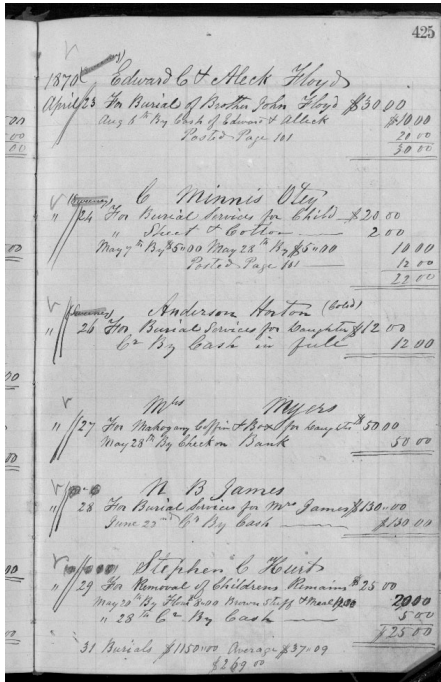 425
1870 Edward C & Aleck Floyd
April 23 For Burial of Brother John Floyd $30 00
Aug 6th By Cash of Edward & Alleck $10 00
Posted Page 101 20 00
30 00
C Minnis Otey
" 24 For Burial Services for Child $20 00
" Sheet & Cotton 2 00
May 7th By $5"00 May 28th By $5"00 10 00
Posted Page 101 12 00
22 00
Anderson Horton (Cold)
" 26 For Burial Services for Daughter $12 00
Cr By Cash in full 12 00
Mrs Myers
" 27 For Mahogany Coffin & Box for Daughter $50 00
May 28th By Check on Bank 50 00
N B James
" 28 For Burial Services for Mrs James $130"00
June 22nd Cr By Cash $130 00
Stephen C Hurt
" 29 For Removal of Childrens Remains $25 00
May 20th By Flour 8"00 Brown Stuff & Meal 20 00
" 28th Cr By Cash 5 00
$25 00
31 Burials $1150"00 Average $37"09
$269 00